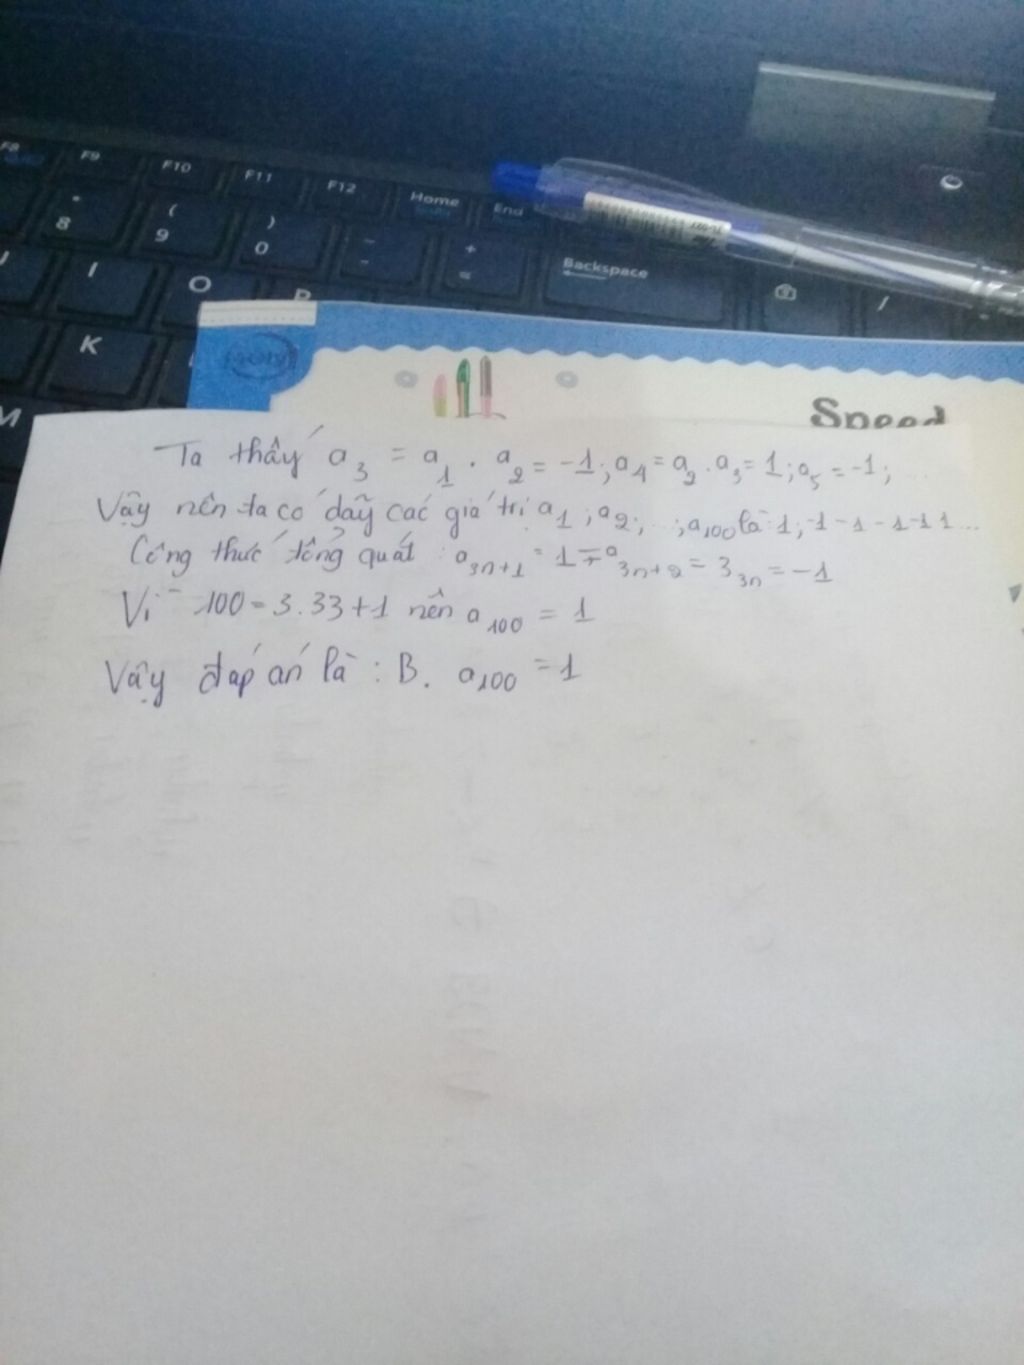 F8 F9 F10 F11 F12 Home End
* 8 ( 9 ) 0 - + = Backspace
I O P /
K
M
Speed
Ta thấy a3 = a1 . a2 = -1; a4 = a2 . a3 = 1; a5 = -1; ...
Vậy nên ta có dãy các giá trị a1; a2; ...; a100 là: 1; -1 -1 -1 -1 1 ...
Công thức tổng quát: a3n+1 = 1 a3n+2 = 33n = -1
Vì 100 = 3.33+1 nên a100 = 1
Vậy đáp án là: B. a100 = 1